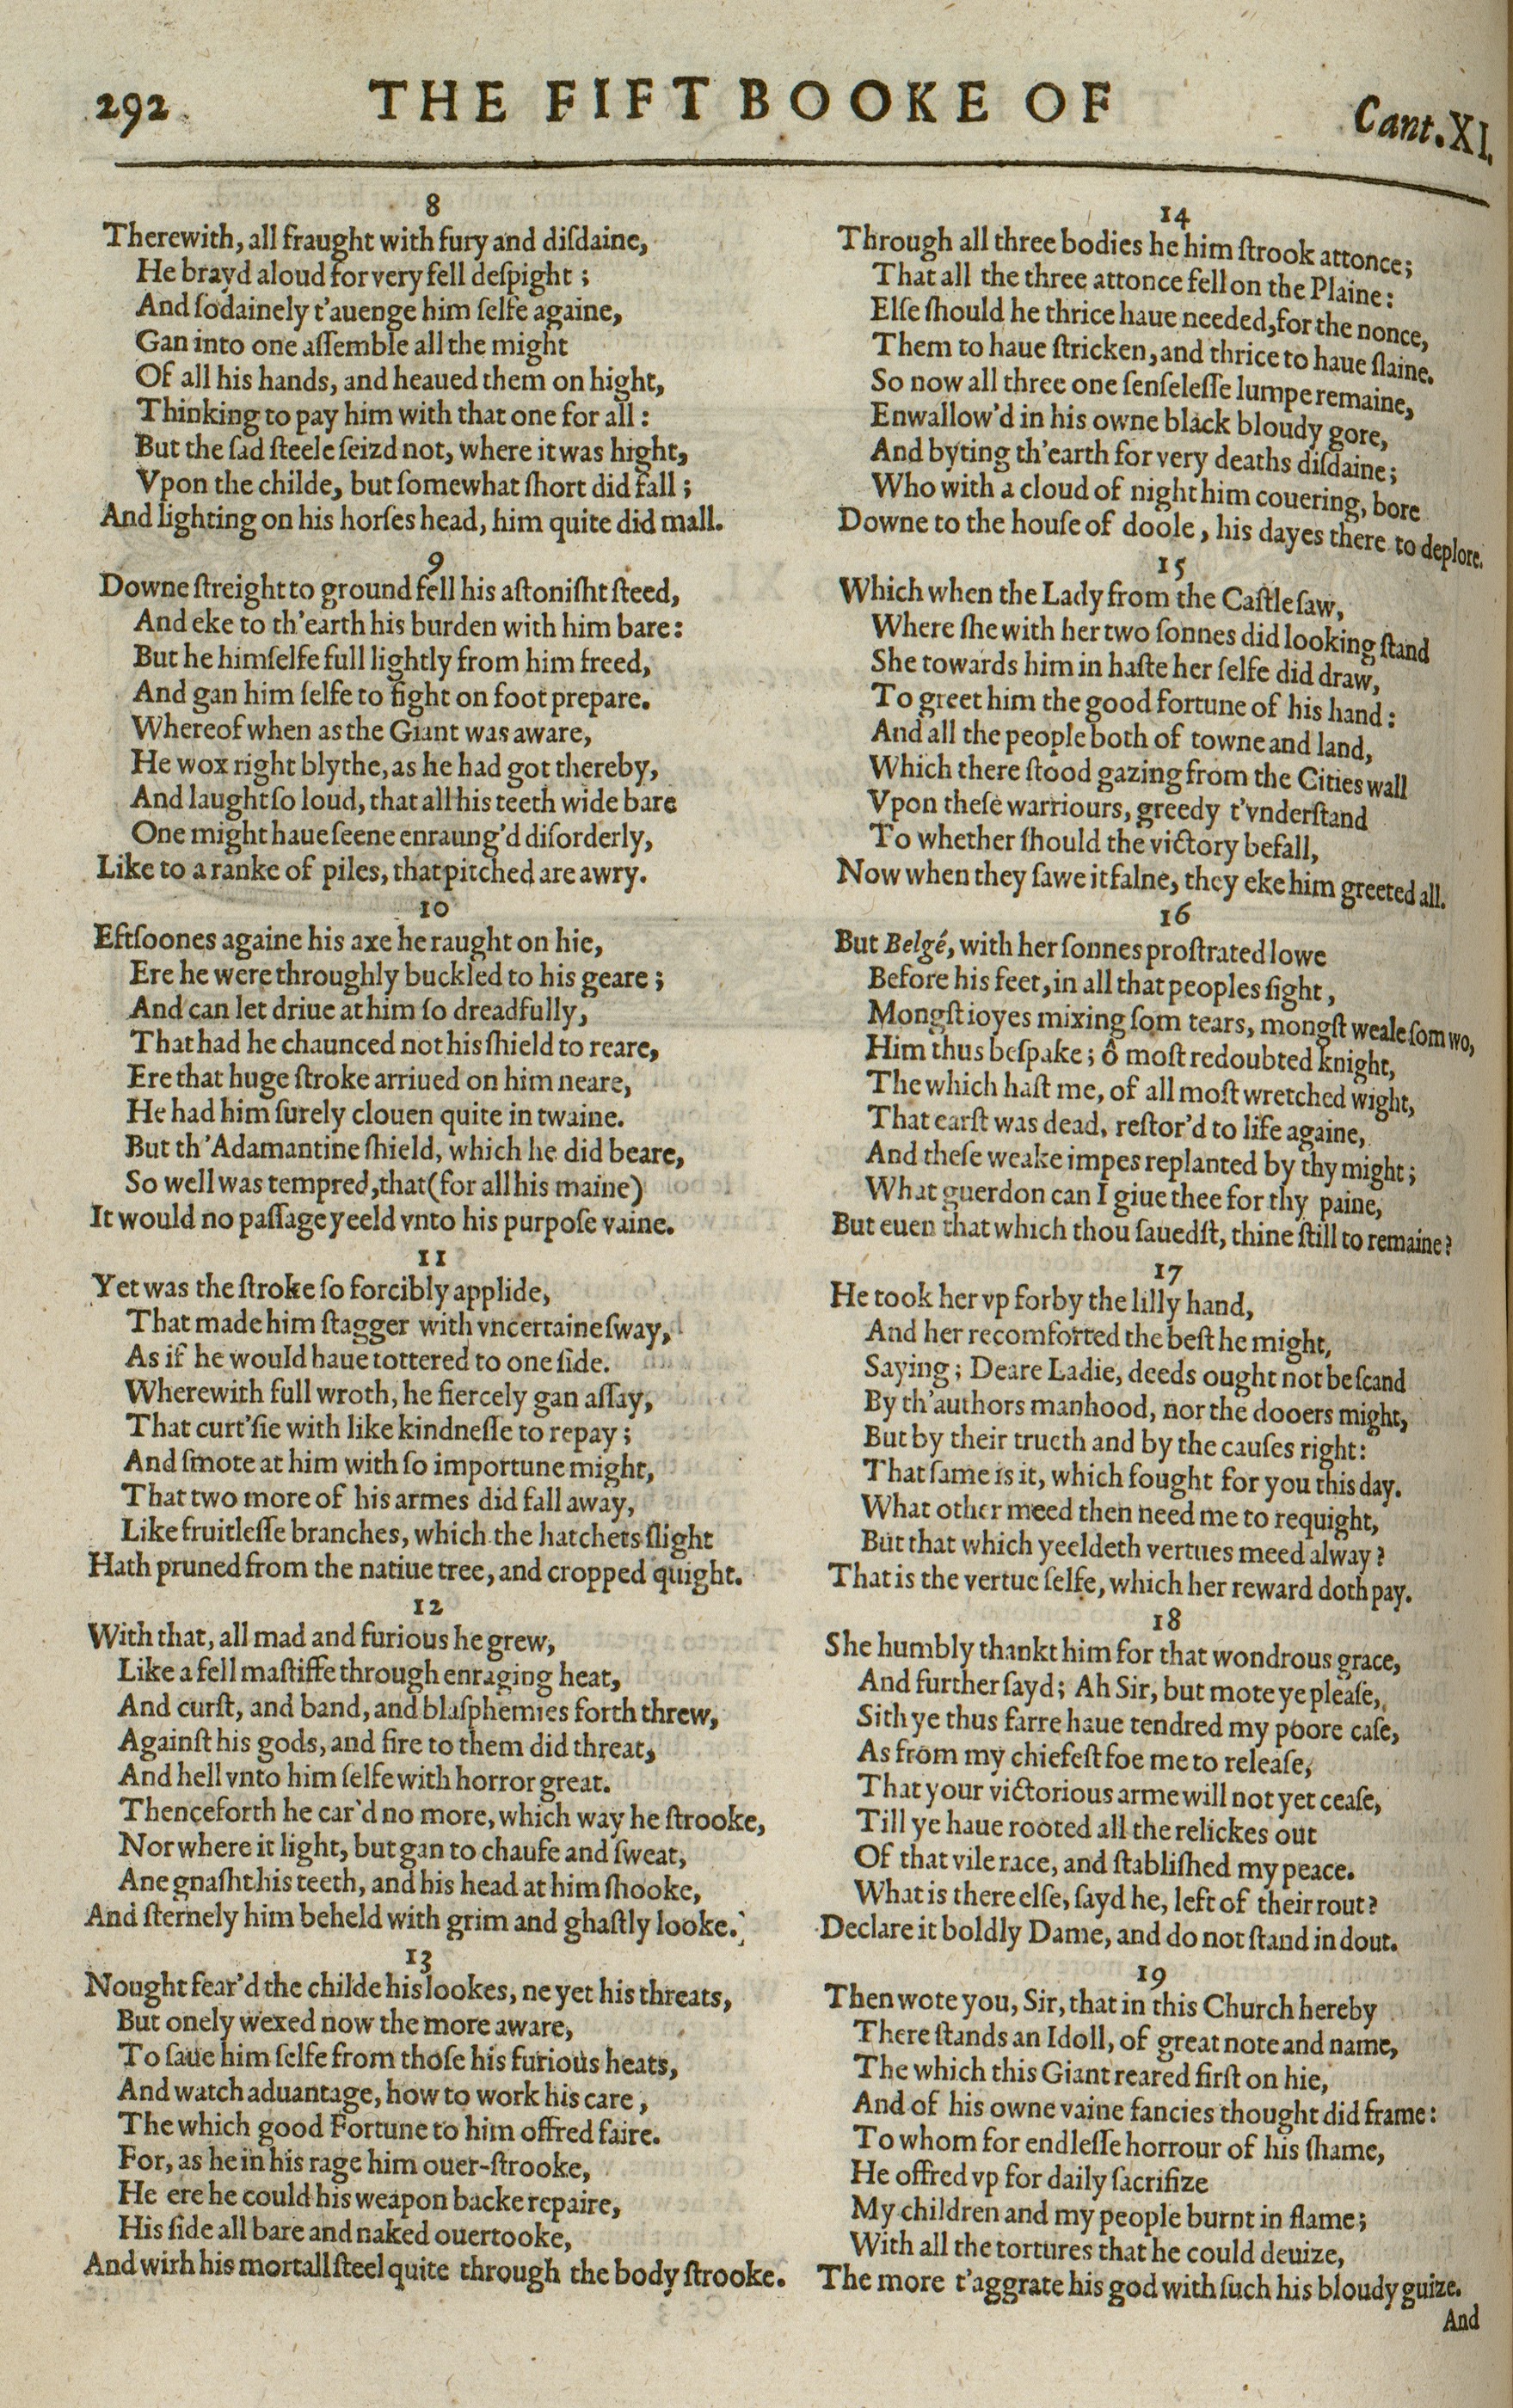 292
THE FIFT BOOKE OF
Cant. XI.
8
Therewith, all fraught with fury and diſdaine,
He brayd aloud for very fell deſpight;
And ſodainely t'auenge him ſelfe againe,
Gan into one aſſemble all the might
Of all his hands, and heaued them on hight,
Thinking to pay him with that one for all:
But the ſad ſteele ſeizd not, where it was hight,
Vpon the childe, but ſomewhat ſhort did fall;
And lighting on his horſes head, him quite did mall.
9
Downe ſtreight to ground fell his aſtoniſht ſteed,
And eke to th'earth his burden with him bare:
But he himſelfe full lightly from him freed,
And gan him ſelfe to fight on foot prepare.
Whereof when as the Giant was aware,
He wox right blythe, as he had got thereby,
And laught ſo loud, that all his teeth wide bare
One might haue ſeene enraung'd diſorderly,
Like to a ranke of piles, that pitched are awry.
10
Eftſoones againe his axe he raught on hie,
Ere he were throughly buckled to his geare;
And can let driue at him ſo dreadfully,
That had he chaunced not his ſhield to reare,
Ere that huge ſtroke arriued on him neare,
He had him ſurely clouen quite in twaine.
But th'Adamantine ſhield, which he did beare,
So well was tempred, that (for all his maine)
It would no paſſage yeeld vnto his purpoſe vaine.
11
Yet was the ſtroke ſo forcibly applide,
That made him ſtagger with vncertaine ſway,
As if he would haue tottered to one ſide.
Wherewith full wroth, he fiercely gan aſſay,
That curt'ſie with like kindneſſe to repay;
And ſmote at him with ſo importune might,
That two more of his armes did fall away,
Like fruitleſſe branches, which the hatchets ſlight
Hath pruned from the natiue tree, and cropped quight.
12
With that, all mad and furious he grew,
Like a fell maſtiffe through enraging heat,
And curſt, and band, and blaſphemies forth threw,
Againſt his gods, and fire to them did threat,
And hell vnto him ſelfe with horror great.
Thenceforth he car'd no more, which way he ſtrooke,
Nor where it light, but gan to chaufe and ſweat,
Ane gnaſht his teeth, and his head at him ſhooke,
And ſternely him beheld with grim and ghaſtly looke.
13
Nought fear'd the childe his lookes, ne yet his threats,
But onely wexed now the more aware,
To ſaue him ſelfe from thoſe his furious heats,
And watch aduantage, how to work his care,
The which good Fortune to him offred faire.
For, as he in his rage him ouer-ſtrooke,
He ere he could his weapon backe repaire,
His ſide all bare and naked ouertooke,
And wirh his mortall ſteel quite through the body ſtrooke.
14
Through all three bodies he him ſtrook attonce;
That all the three attonce fell on the Plaine:
Elſe ſhould he thrice haue needed, for the nonce,
Them to haue ſtricken, and thrice to haue ſlaine.
So now all three one ſenſeleſſe lumpe remaine,
Enwallow'd in his owne black bloudy gore,
And byting th'earth for very deaths diſdaine;
Who with a cloud of night him couering, bore
Downe to the houſe of doole, his dayes there to deplore.
15
Which when the Lady from the Caſtle ſaw,
Where ſhe with her two ſonnes did looking ſtand
She towards him in haſte her ſelfe did draw,
To greet him the good fortune of his hand:
And all the people both of towne and land,
Which there ſtood gazing from the Cities wall
Vpon theſe warriours, greedy t'vnderſtand
To whether ſhould the victory befall,
Now when they ſawe it falne, they eke him greeted all.
16
But Belgé, with her ſonnes proſtrated lowe
Before his feet, in all that peoples ſight,
Mongſt ioyes mixing ſom tears, mongſt weale ſom wo,
Him thus beſpake; ô moſt redoubted knight,
The which haſt me, of all moſt wretched wight,
That earſt was dead, reſtor'd to life againe,
And theſe weake impes replanted by thy might;
What guerdon can I giue thee for thy paine,
But euen that which thou ſauedſt, thine ſtill to remaine?
17
He took her vp forby the lilly hand,
And her recomforted the beſt he might,
Saying; Deare Ladie, deeds ought not be ſcand
By th'authors manhood, nor the dooers might,
But by their trueth and by the cauſes right:
That ſame is it, which fought for you this day.
What other meed then need me to requight,
But that which yeeldeth vertues meed alway?
That is the vertue ſelfe, which her reward doth pay.
18
She humbly thankt him for that wondrous grace,
And further ſayd; Ah Sir, but mote ye pleaſe,
Sith ye thus farre haue tendred my poore caſe,
As from my chiefeſt foe me to releaſe,
That your victorious arme will not yet ceaſe,
Till ye haue rooted all the relickes out
Of that vile race, and ſtabliſhed my peace.
What is there elſe, ſayd he, left of their rout?
Declare it boldly Dame, and do not ſtand in dout.
19
Then wote you, Sir, that in this Church hereby
There ſtands an Idoll, of great note and name,
The which this Giant reared firſt on hie,
And of his owne vaine fancies thought did frame:
To whom for endleſſe horrour of his ſhame,
He offred vp for daily ſacrifize
My children and my people burnt in flame;
With all the tortures that he could deuize,
The more t'aggrate his god with ſuch his bloudy guize.
And